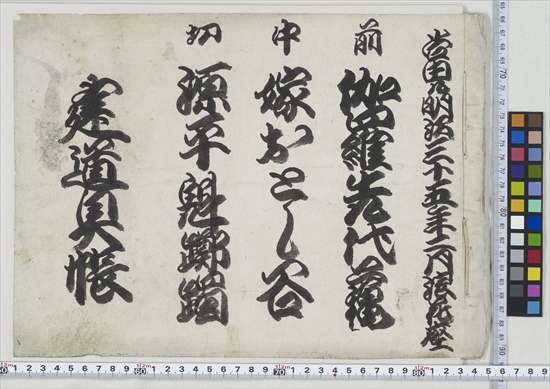 當ル明治三十五年二月浪花座
前 伽羅先代萩
中 嫁おとし谷
切 源平魁躑躅
建道具帳